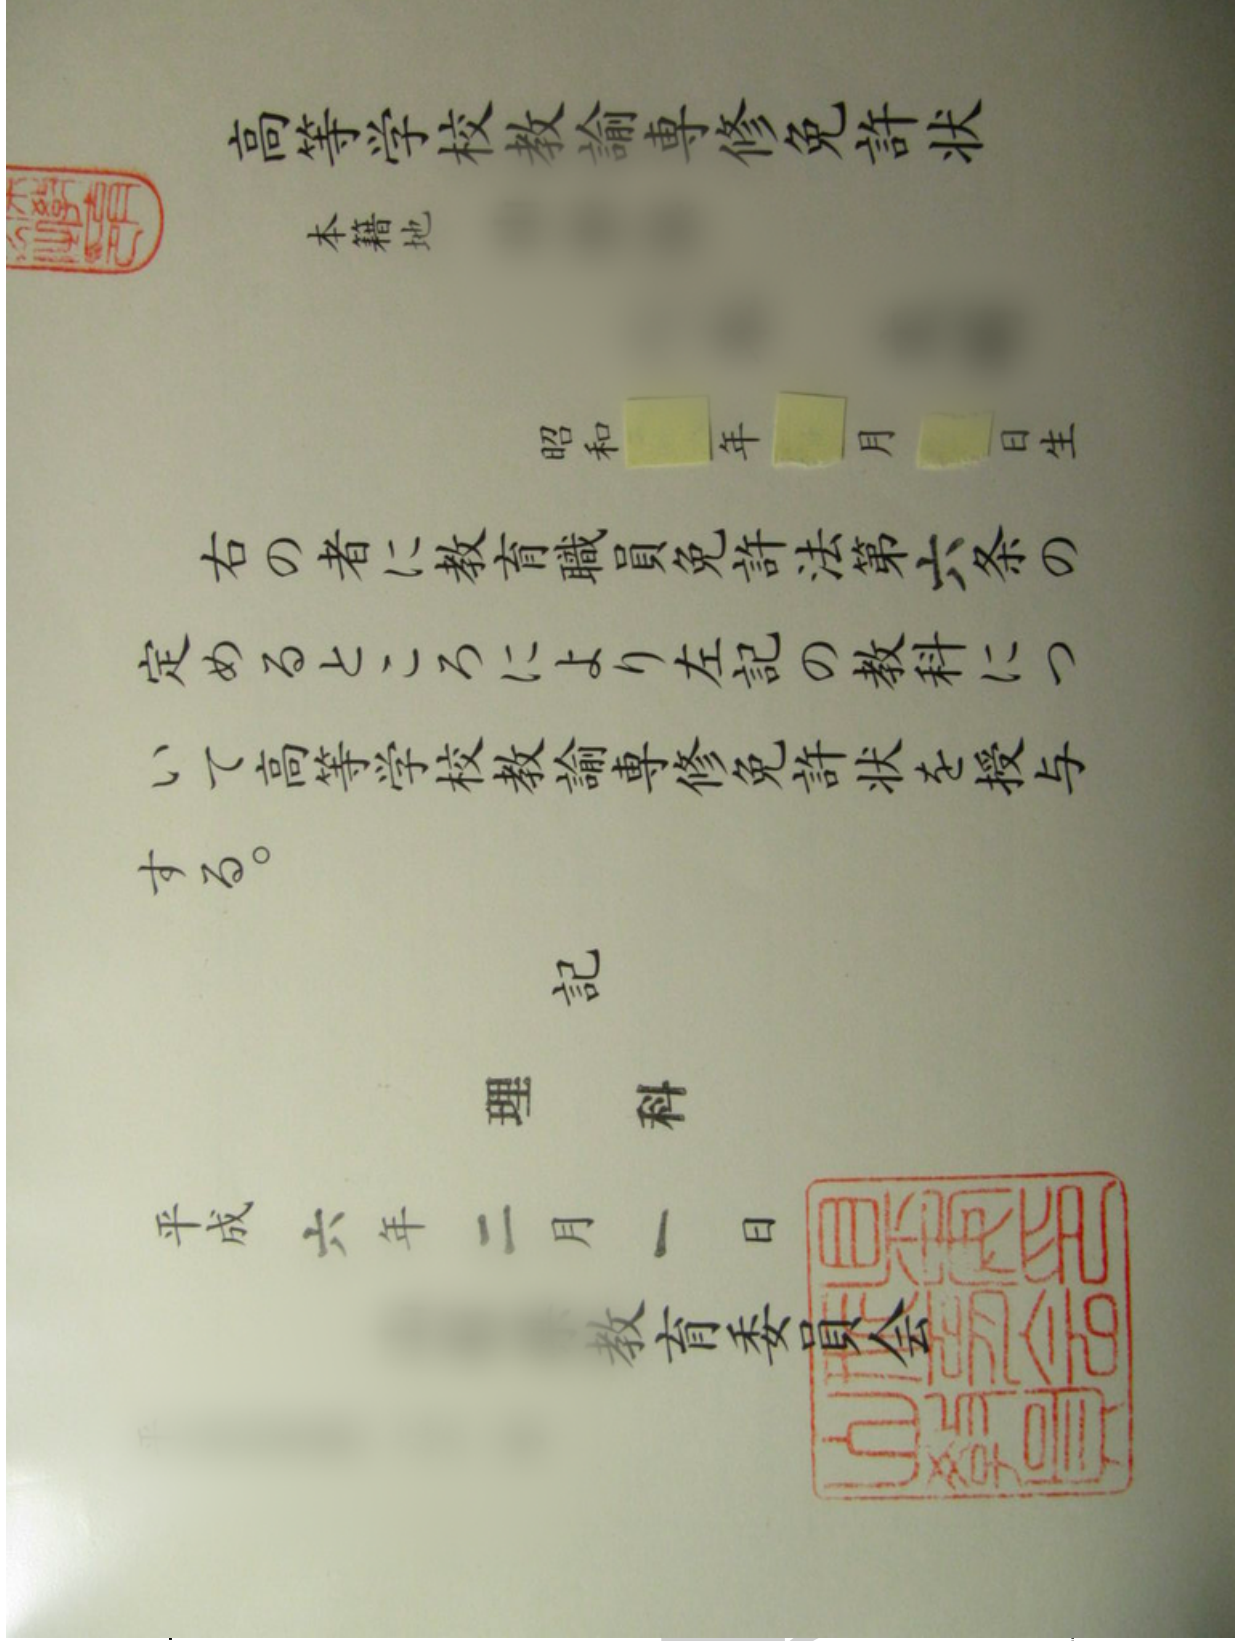 高等学校教諭専修免許状
本籍地
昭和 年 月 日生
右の者に教育職員免許法第六条の
定めるところにより左記の教科につ
いて高等学校教諭専修免許状を授与
する。
記
理科
平成六年二月一日
教育委員会